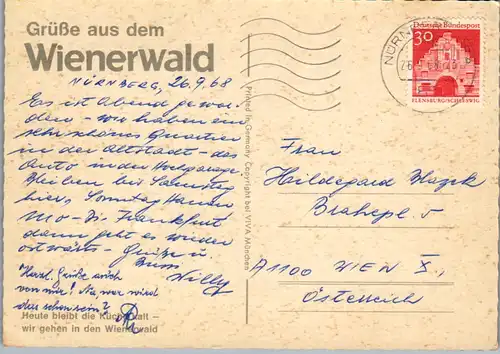 Grüße aus dem
Wienerwald
NÜRNBERG, 26.9.68
Es ist Abend gewor-
den - wir haben ein
sehr schönes Quartier
in der Altstadt - das
Auto in der Hochgarage.
Bleiben bis Samstag
hier, Sonntag Hanau
Mo - Di. Frankfurt
dann geht es wieder
ostwärts - Grüße u.
Bussi Willy
Herzl. Grüße auch
von mir! Na, wer wird
das schon sein?
Heute bleibt die Küche kalt -
wir gehen in den Wienerwald
Printed in Germany Copyright bei VIVA München
Deutsche Bundespost
30
FLENSBURG/SCHLESWIG
NÜRN
Frau
Hildegard
5
A 1100 WIEN X.,
Österreich